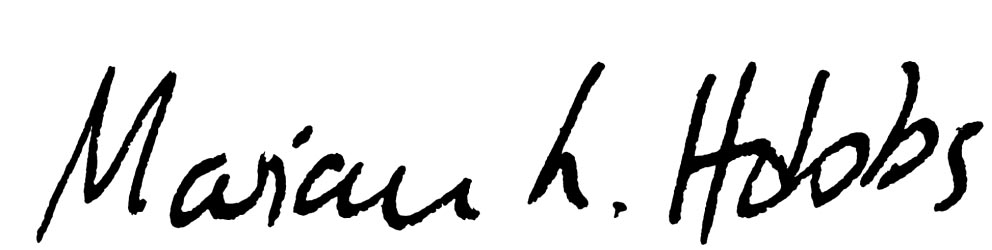 Marian L. Hobbs